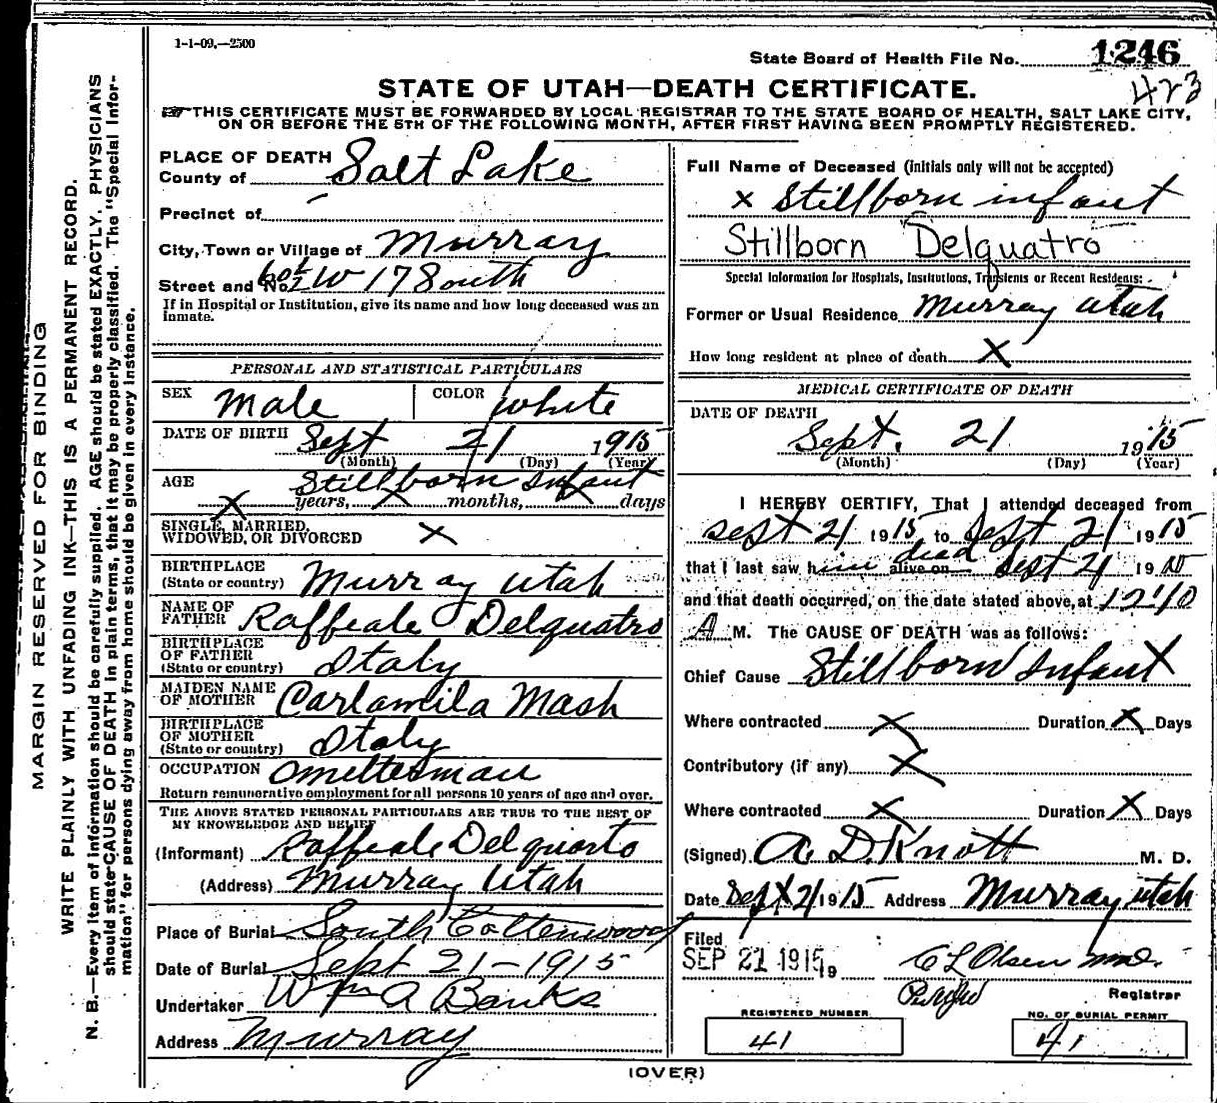 1-1-09.—2500
State Board of Health File No. 1246
423
STATE OF UTAH—DEATH CERTIFICATE.
THIS CERTIFICATE MUST BE FORWARDED BY LOCAL REGISTRAR TO THE STATE BOARD OF HEALTH, SALT LAKE CITY,
ON OR BEFORE THE 5TH OF THE FOLLOWING MONTH, AFTER FIRST HAVING BEEN PROMPTLY REGISTERED.
MARGIN RESERVED FOR BINDING
WRITE PLAINLY WITH UNFADING INK—THIS IS A PERMANENT RECORD.
N. B.—Every item of information should be carefully supplied. AGE should be stated EXACTLY. PHYSICIANS
should state CAUSE OF DEATH in plain terms, that it may be properly classified. The "Special Infor-
mation" for persons dying away from home should be given in every instance.
PLACE OF DEATH
County of Salt Lake
Precinct of
City, Town or Village of Murray
Street and No. W 17 South
If in Hospital or Institution, give its name and how long deceased was an
inmate.
PERSONAL AND STATISTICAL PARTICULARS
SEX Male COLOR white
DATE OF BIRTH Sept 21 1915
(Month) (Day) (Year)
AGE Stillborn Infant
X years, X months, X days
SINGLE, MARRIED,
WIDOWED, OR DIVORCED X
BIRTHPLACE
(State or country) Murray Utah
NAME OF
FATHER Raffeale Delquatro
BIRTHPLACE
OF FATHER
(State or country) Italy
MAIDEN NAME
OF MOTHER Carlamila Mash
BIRTHPLACE
OF MOTHER
(State or country) Italy
OCCUPATION Smelterman
Return remunerative employment for all persons 10 years of age and over.
THE ABOVE STATED PERSONAL PARTICULARS ARE TRUE TO THE BEST OF
MY KNOWLEDGE AND BELIEF
(Informant) Raffeale Delquarto
(Address) Murray Utah
Place of Burial South Cottonwood
Date of Burial Sept 21-1915
Undertaker Wm A Banks
Address Murray
Full Name of Deceased (initials only will not be accepted)
x Stillborn infant
Stillborn Delquatro
Special Information for Hospitals, Institutions, Transients or Recent Residents:
Former or Usual Residence Murray Utah
How long resident at place of death X
MEDICAL CERTIFICATE OF DEATH
DATE OF DEATH
Sept. 21 1915
(Month) (Day) (Year)
I HEREBY CERTIFY, That I attended deceased from
Sept 21 1915 to Sept 21 1915
that I last saw him alive on dead Sept 21 1915
and that death occurred, on the date stated above, at 12:10
A M. The CAUSE OF DEATH was as follows:
Chief Cause Stillborn Infant X
Where contracted X Duration X Days
Contributory (if any) X
Where contracted X Duration X Days
(Signed) A. D. Knott M. D.
Date Sept 21 1915 Address Murray Utah
Filed
SEP 21 1915 19 C L Olsen md.
Registrar
REGISTERED NUMBER
41
NO. OF BURIAL PERMIT
41
(OVER)